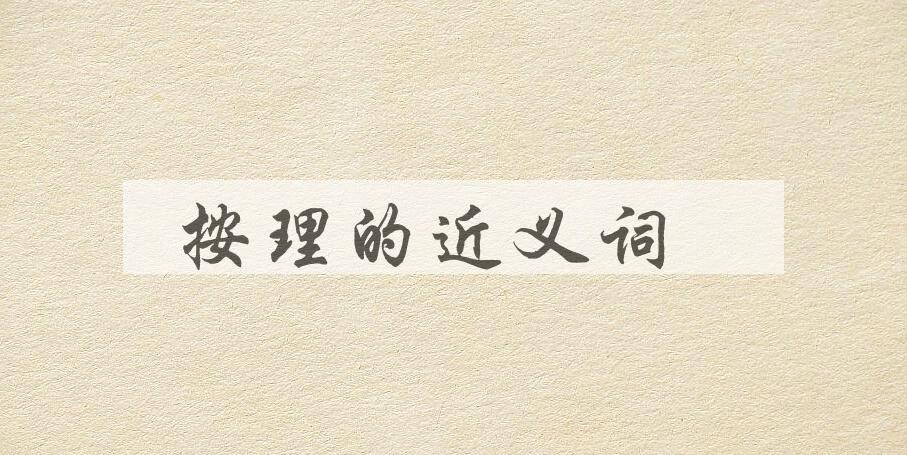 按理的近义词